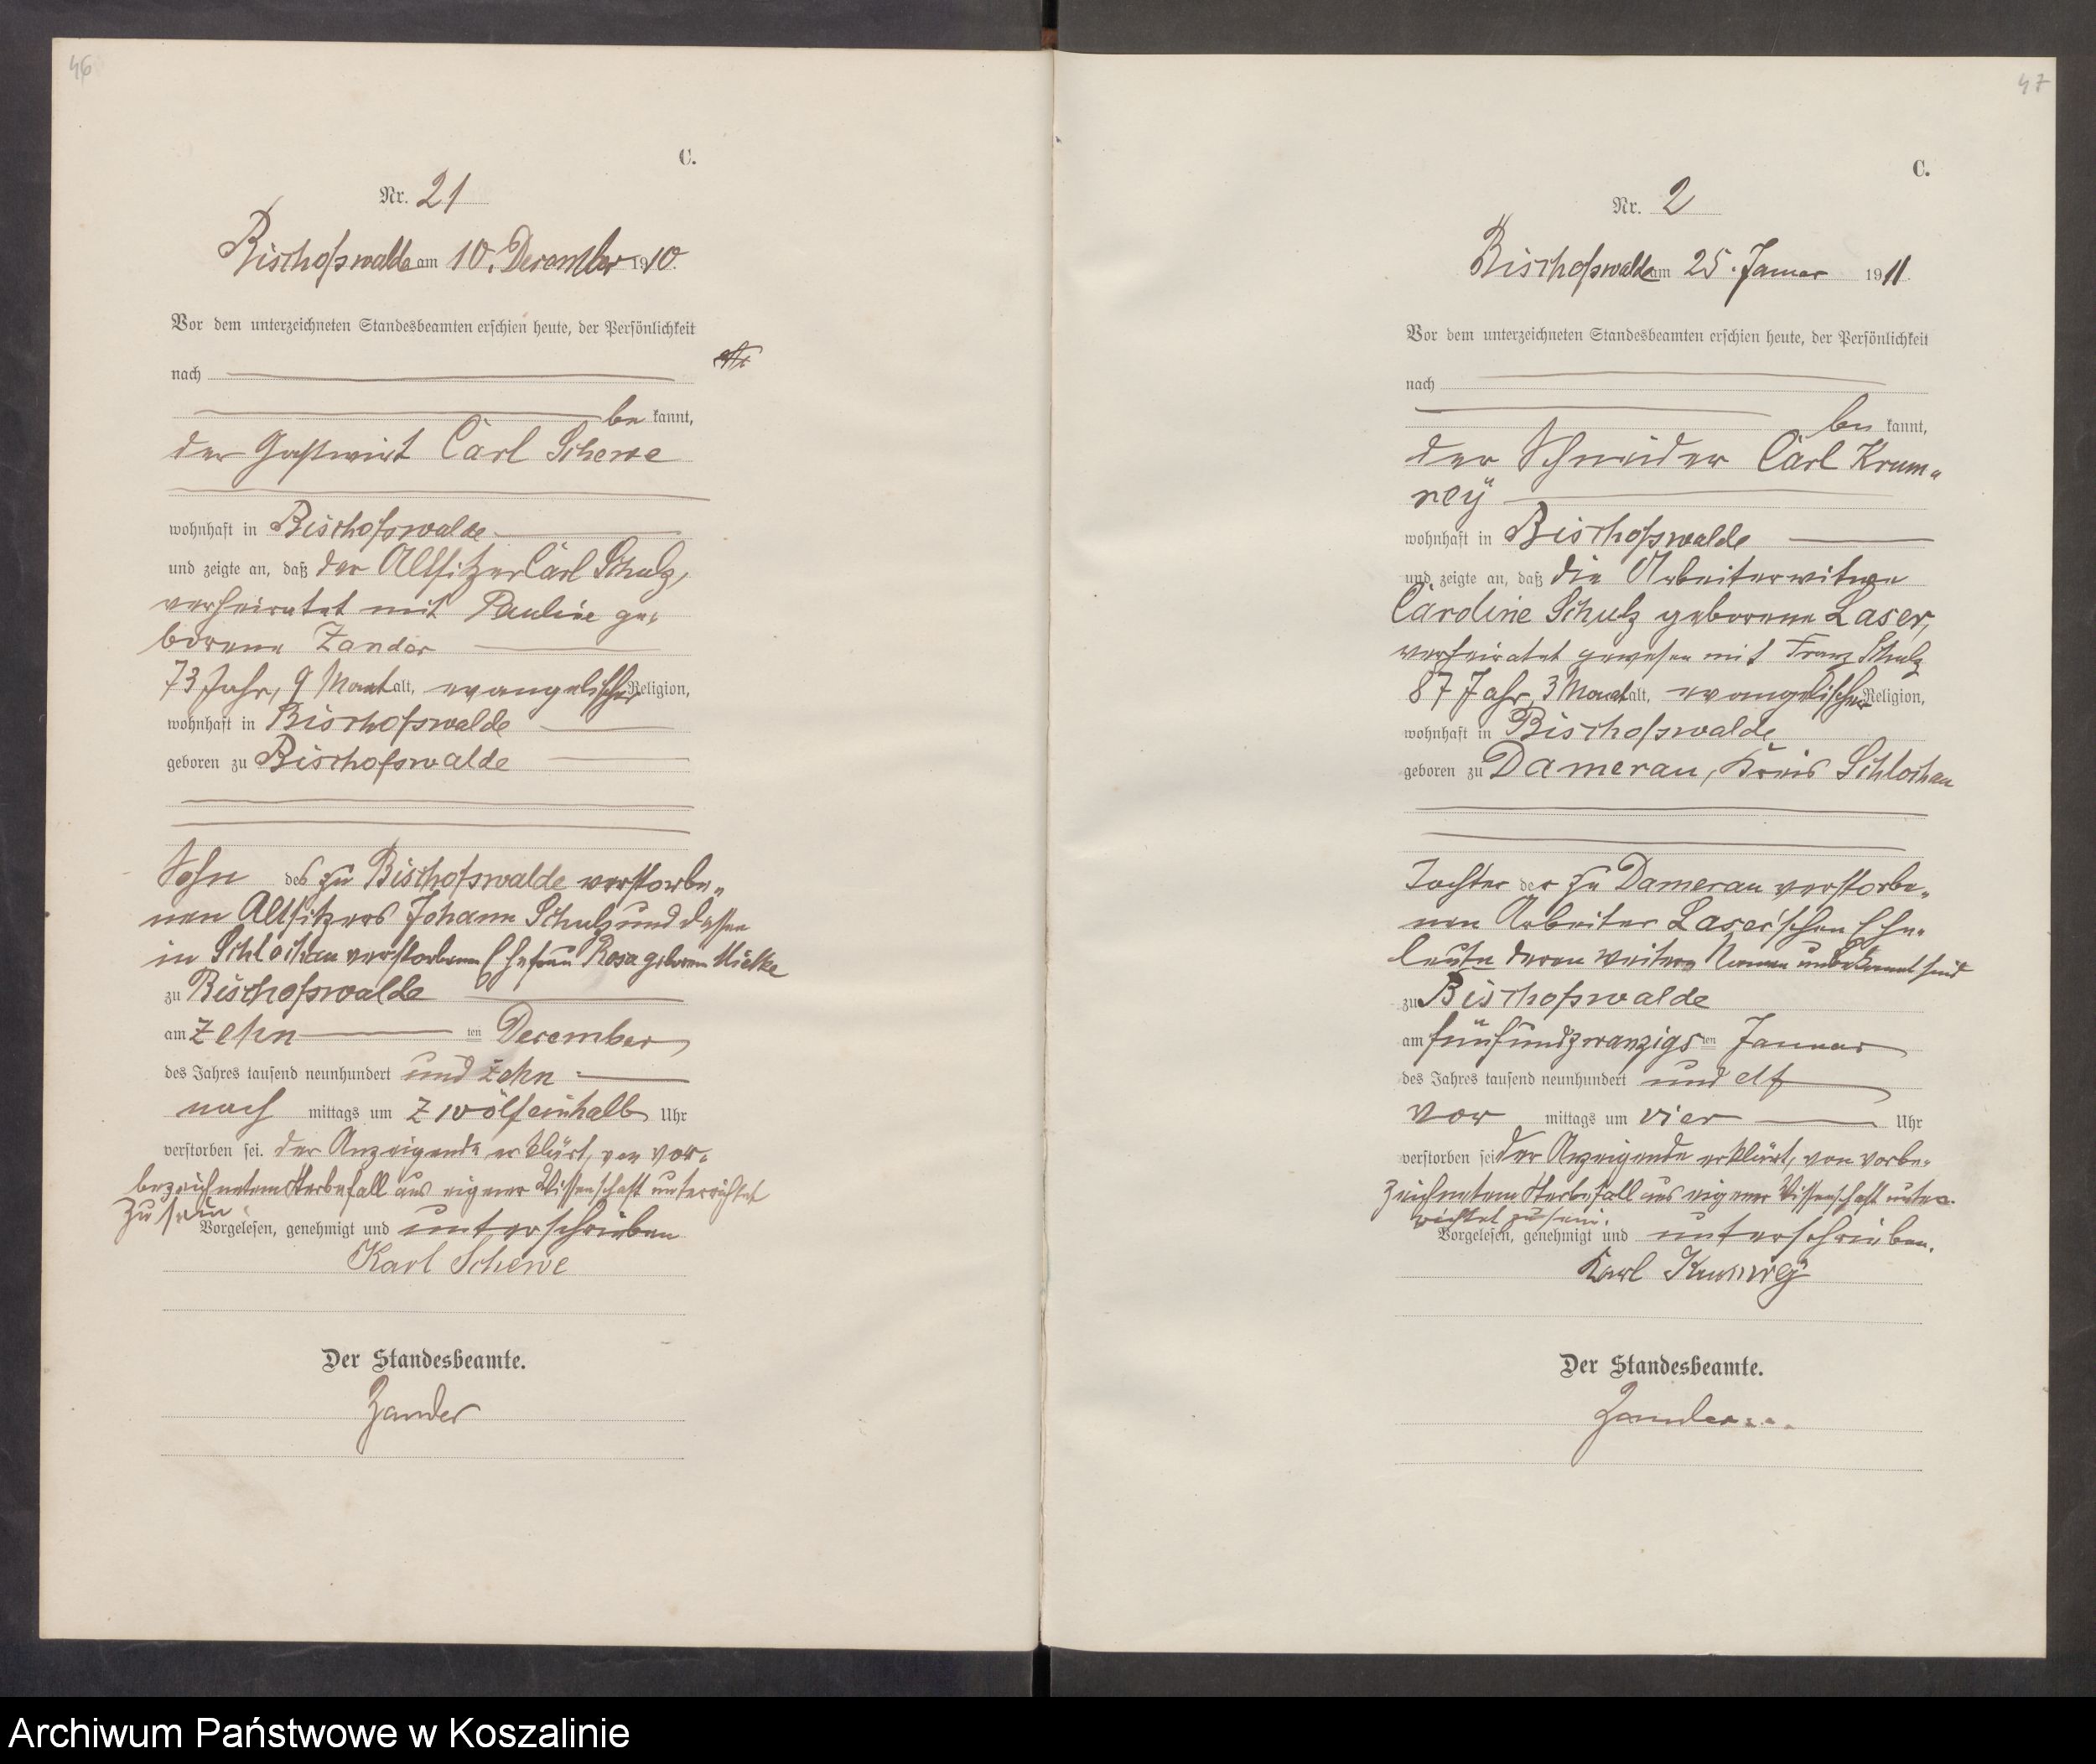 46
C.
Nr. 21
Bischofswalde am 10. December 1910.
Vor dem unterzeichneten Standesbeamten erschien heute, der Persönlichkeit
nach
be kannt,
der Gastwirt Carl Schewe
wohnhaft in Bischofswalde
und zeigte an, daß der Altsitzer Carl Schulz,
verheiratet mit Pauline ge-
borene Zander
73 Jahr, 9 Monat alt, evangelischer Religion,
wohnhaft in Bischofswalde
geboren zu Bischofswalde
Sohn des zu Bischofswalde verstorbe-
nen Altsitzers Johann Schulz und dessen
in Schlochau verstorbenen Ehefrau Rosa geborene Mielke
zu Bischofswalde
am zehn ten December
des Jahres tausend neunhundert und zehn
nach mittags um zwölfeinhalb Uhr
verstorben sei. der Anzeigende erklärt, von vor-
bezeichnetem Sterbefall aus eigener Wissenschaft unterrichtet
zu sein.
Vorgelesen, genehmigt und unterschrieben
Karl Schewe
Der Standesbeamte.
Zander
47
C.
Nr. 2
Bischofswalde am 25. Januar 1911.
Vor dem unterzeichneten Standesbeamten erschien heute, der Persönlichkeit
nach
be kannt,
der Schneider Carl Krum-
rey
wohnhaft in Bischofswalde
und zeigte an, daß die Arbeiterwitwe
Caroline Schulz geborene Laser,
verheiratet gewesen mit Franz Schulz
87 Jahr, 3 Monat alt, evangelischer Religion,
wohnhaft in Bischofswalde
geboren zu Damerau, Kreis Schlochau
Tochter der zu Damerau verstorbe-
nen Arbeiter Laser'schen Ehe-
leute deren weitere Namen unbekannt sind
zu Bischofswalde
am fünfundzwanzigs ten Januar
des Jahres tausend neunhundert und elf
vor mittags um vier Uhr
verstorben sei der Anzeigende erklärt, von vorbe-
zeichnetem Sterbefall aus eigener Wissenschaft unter-
richtet zu sein.
Vorgelesen, genehmigt und unterschrieben.
Karl Krumrey
Der Standesbeamte.
Zander
Archiwum Państwowe w Koszalinie